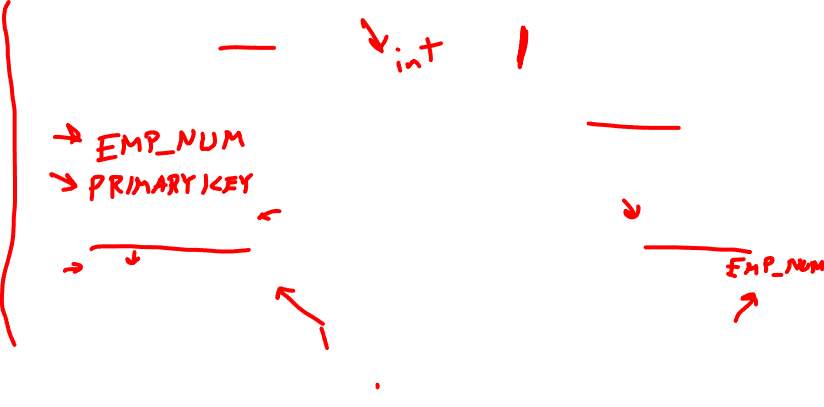 int
EMP_NUM
PRIMARY KEY
EMP_NUM